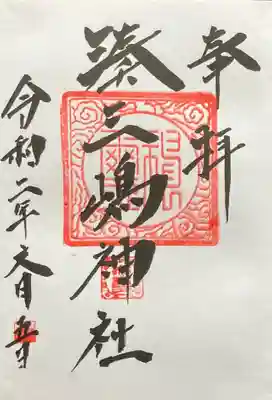 奉拝
湊三嶋神社
令和二年六月五日